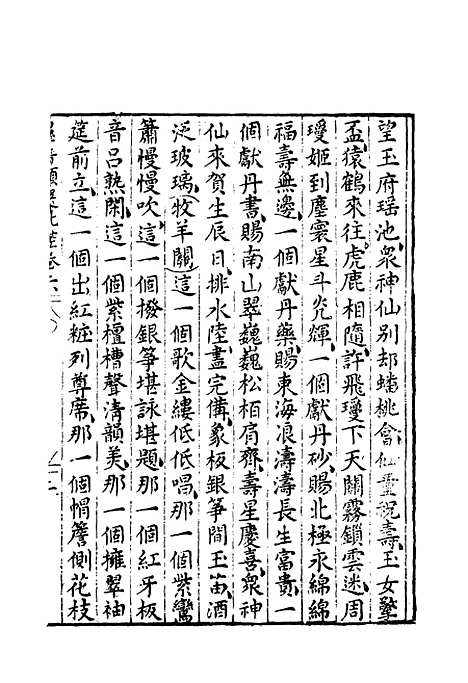 望玉府瑶池衆神仙别却蟠桃會仙靈祝壽玉女擎
盃猿鶴來往虎鹿相隨許飛瓊下天關霧鎖雲迷周
瓊姬到塵寰星斗光輝一個獻丹砂賜北極永綿綿
福壽無邊一個獻丹藥賜東海浪濤濤長生富貴一
個獻丹書賜南山翠巍巍松栢肩齊壽星慶喜衆神
仙來賀生辰日排水陸盡完備象板銀箏間玉笛酒
泛玻璃牧羊關這一個歌金縷低低唱那一個紫鸞
簫慢慢吹這一個撥銀箏堪詠堪題那一個紅牙板
音吕熟閑這一個紫檀槽聲清韻美那一個擁翠袖
筵前立這一個出紅粧列尊席那一個帽簷側花枝